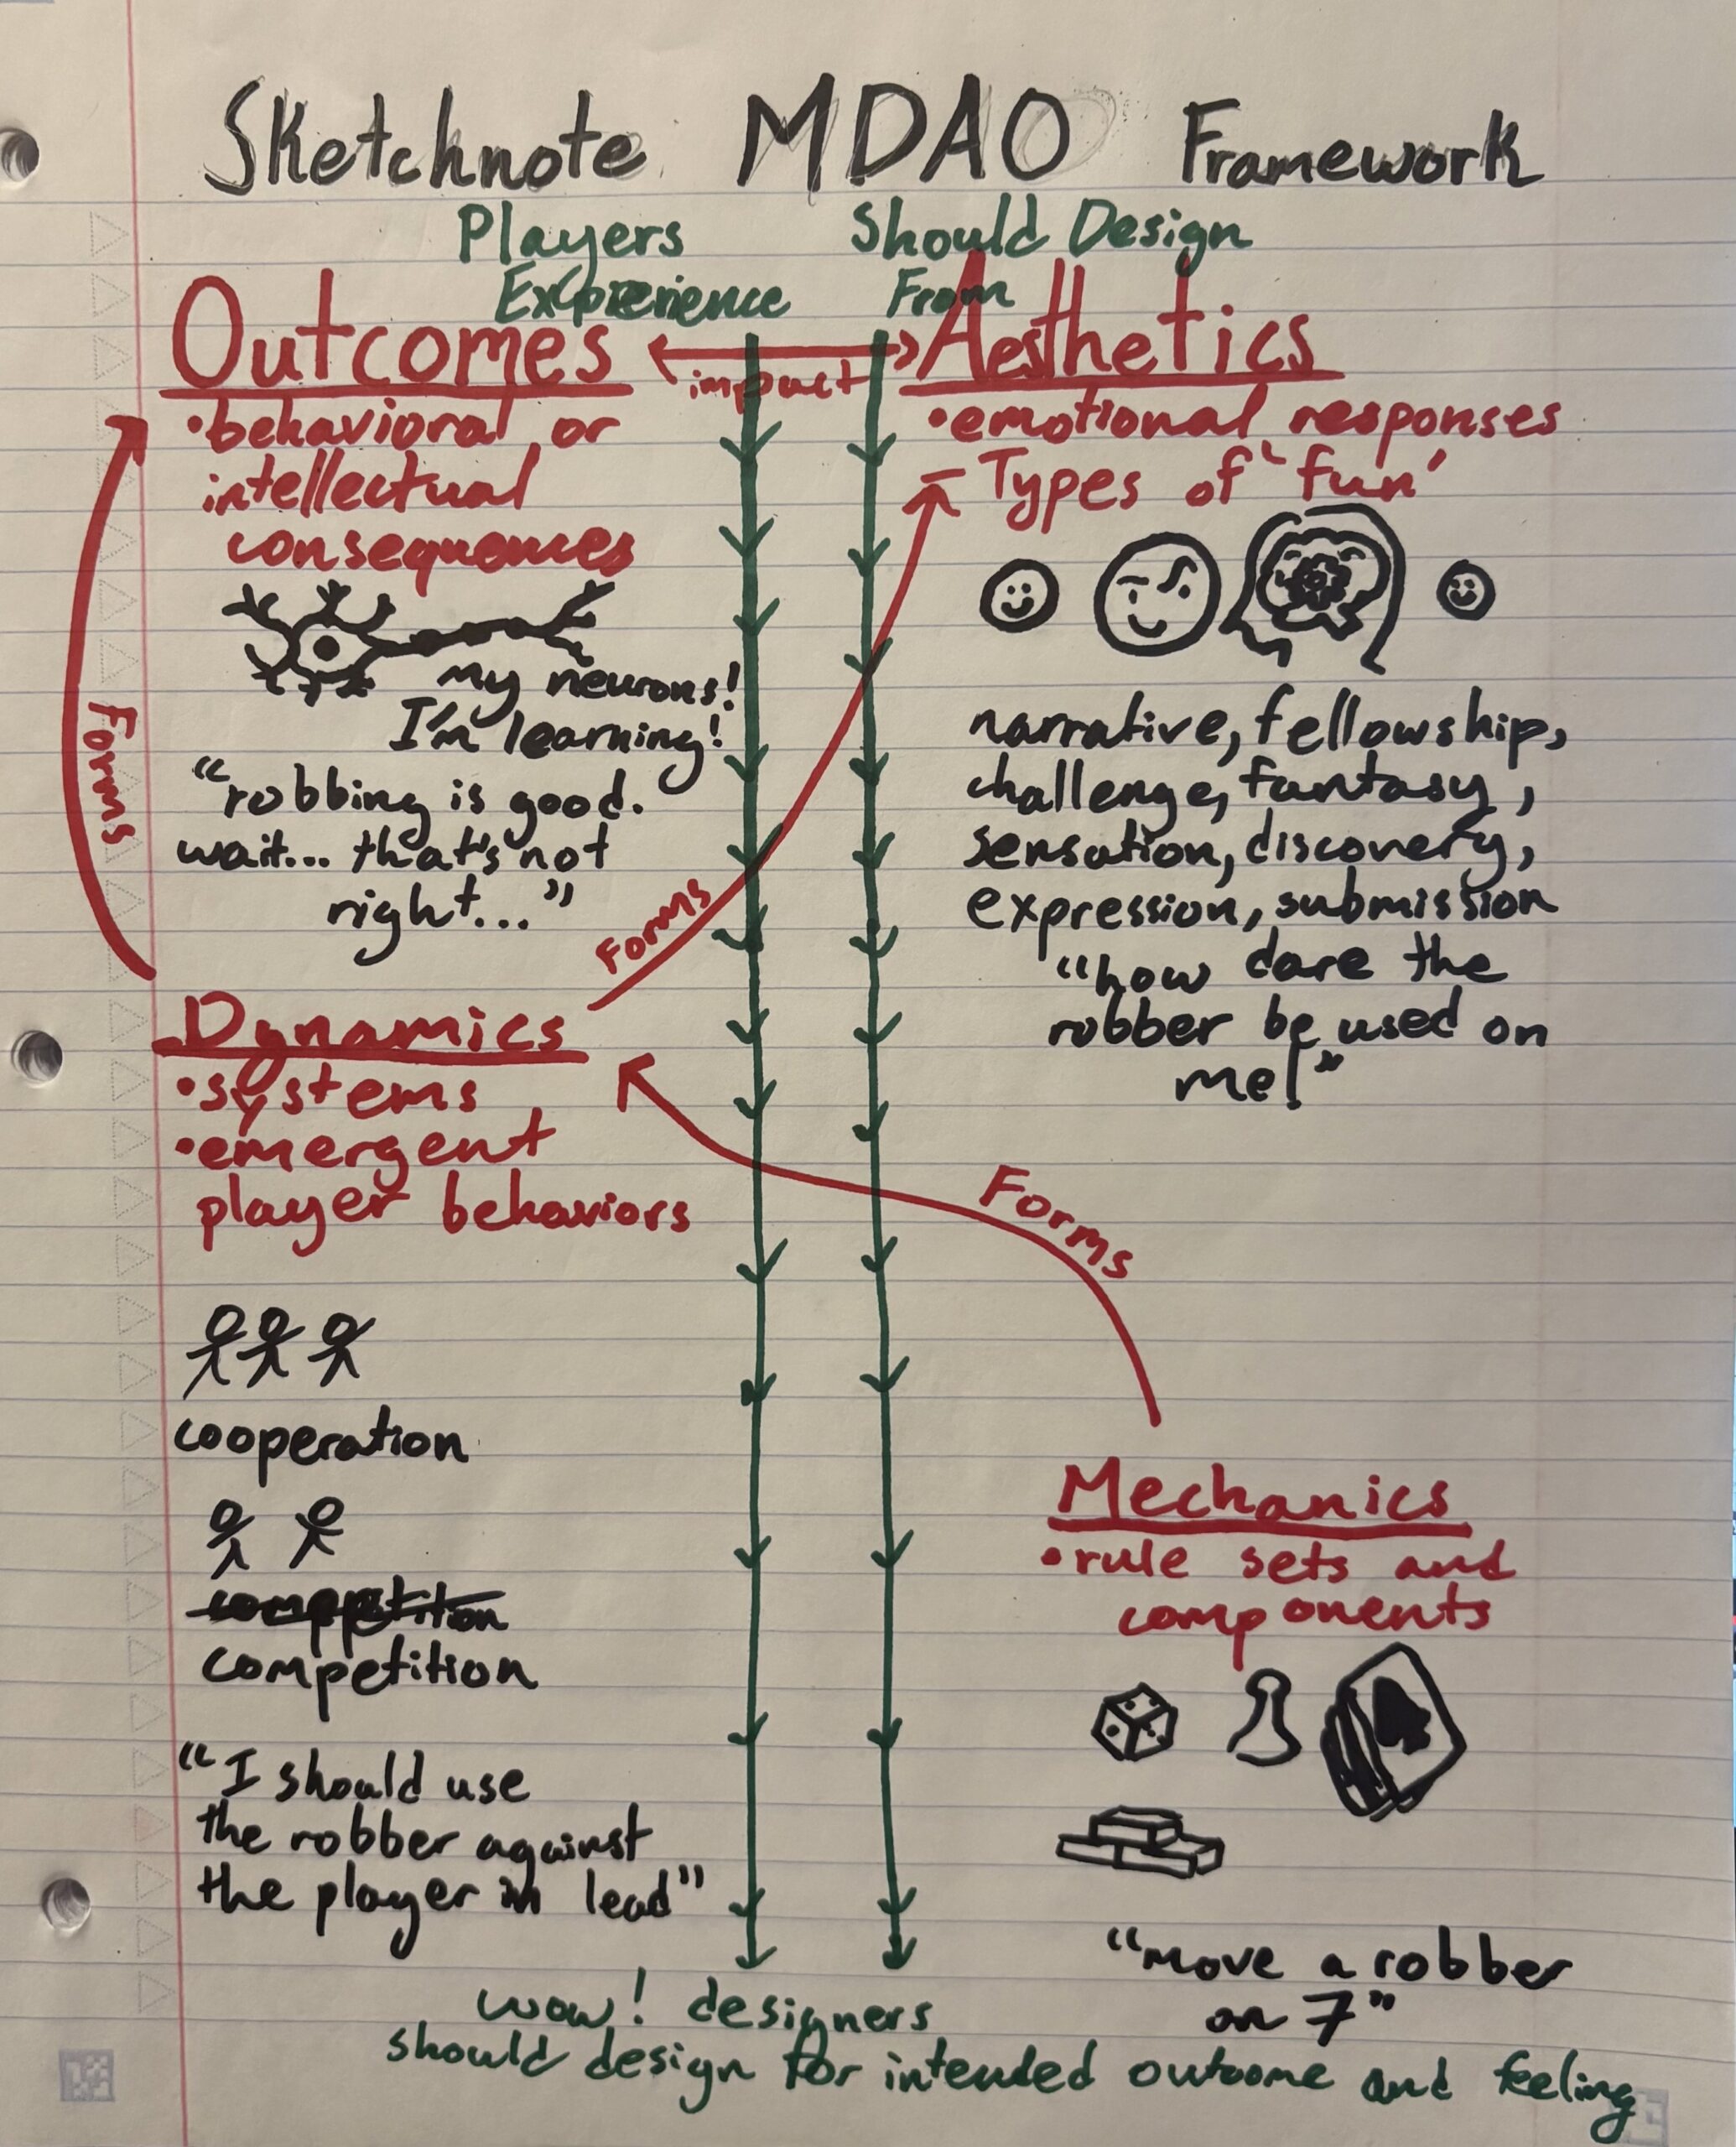 Sketchnote MDAO Framework
Players
Experience
Should Design
From
Outcomes
impact
Aesthetics
•behavioral or
intellectual
consequences
my neurons!
I'm learning!
"robbing is good.
wait... that's not
right..."
Forms
•emotional responses
- Types of 'fun'
narrative, fellowship,
challenge, fantasy,
sensation, discovery,
expression, submission
"how dare the
robber be used on
me!"
Forms
Dynamics
•systems
•emergent
player behaviors
Forms
cooperation
competition
"I should use
the robber against
the player in lead"
Mechanics
•rule sets and
components
"move a robber
on 7"
wow! designers
should design for intended outcome and feeling